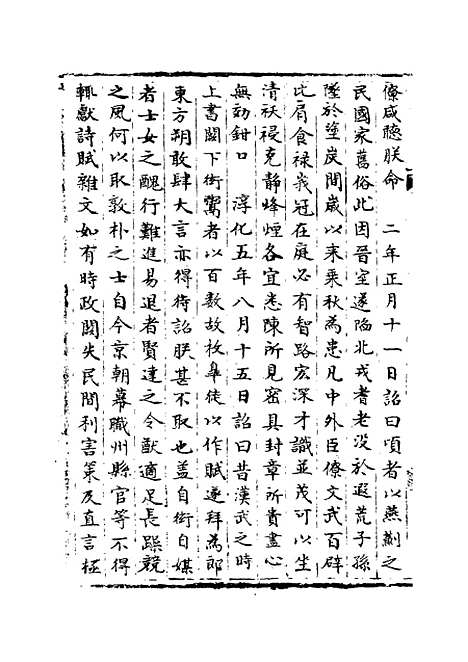 僚咸聽朕命　二年正月十一日詔曰頃者以燕薊之
民國家舊俗此因晉室遂陷北戎耆老没於遐荒子孫
墜於塗炭間歲以来乗秋為患凡中外臣僚文武百辟
比肩食禄峩冠在庭必有智路宏深才識並茂可以坐
清祅祲克静峰煙各宜悉陳所見密具封章所貴盡心
無効鉗口　淳化五年八月十五日詔曰昔漢武之時
上書闕下衒鬻者以百數故枚臯徒以作賦遂拜為郎
東方朔敢肆大言亦得待詔朕甚不取也盖自衒自媒
者士女之醜行難進易退者賢達之令猷適足長躁競
之風何以取敦朴之士自今京朝幕職州縣官等不得
輙獻詩賦雜文如有時政闕失民間利害䇿及直言極